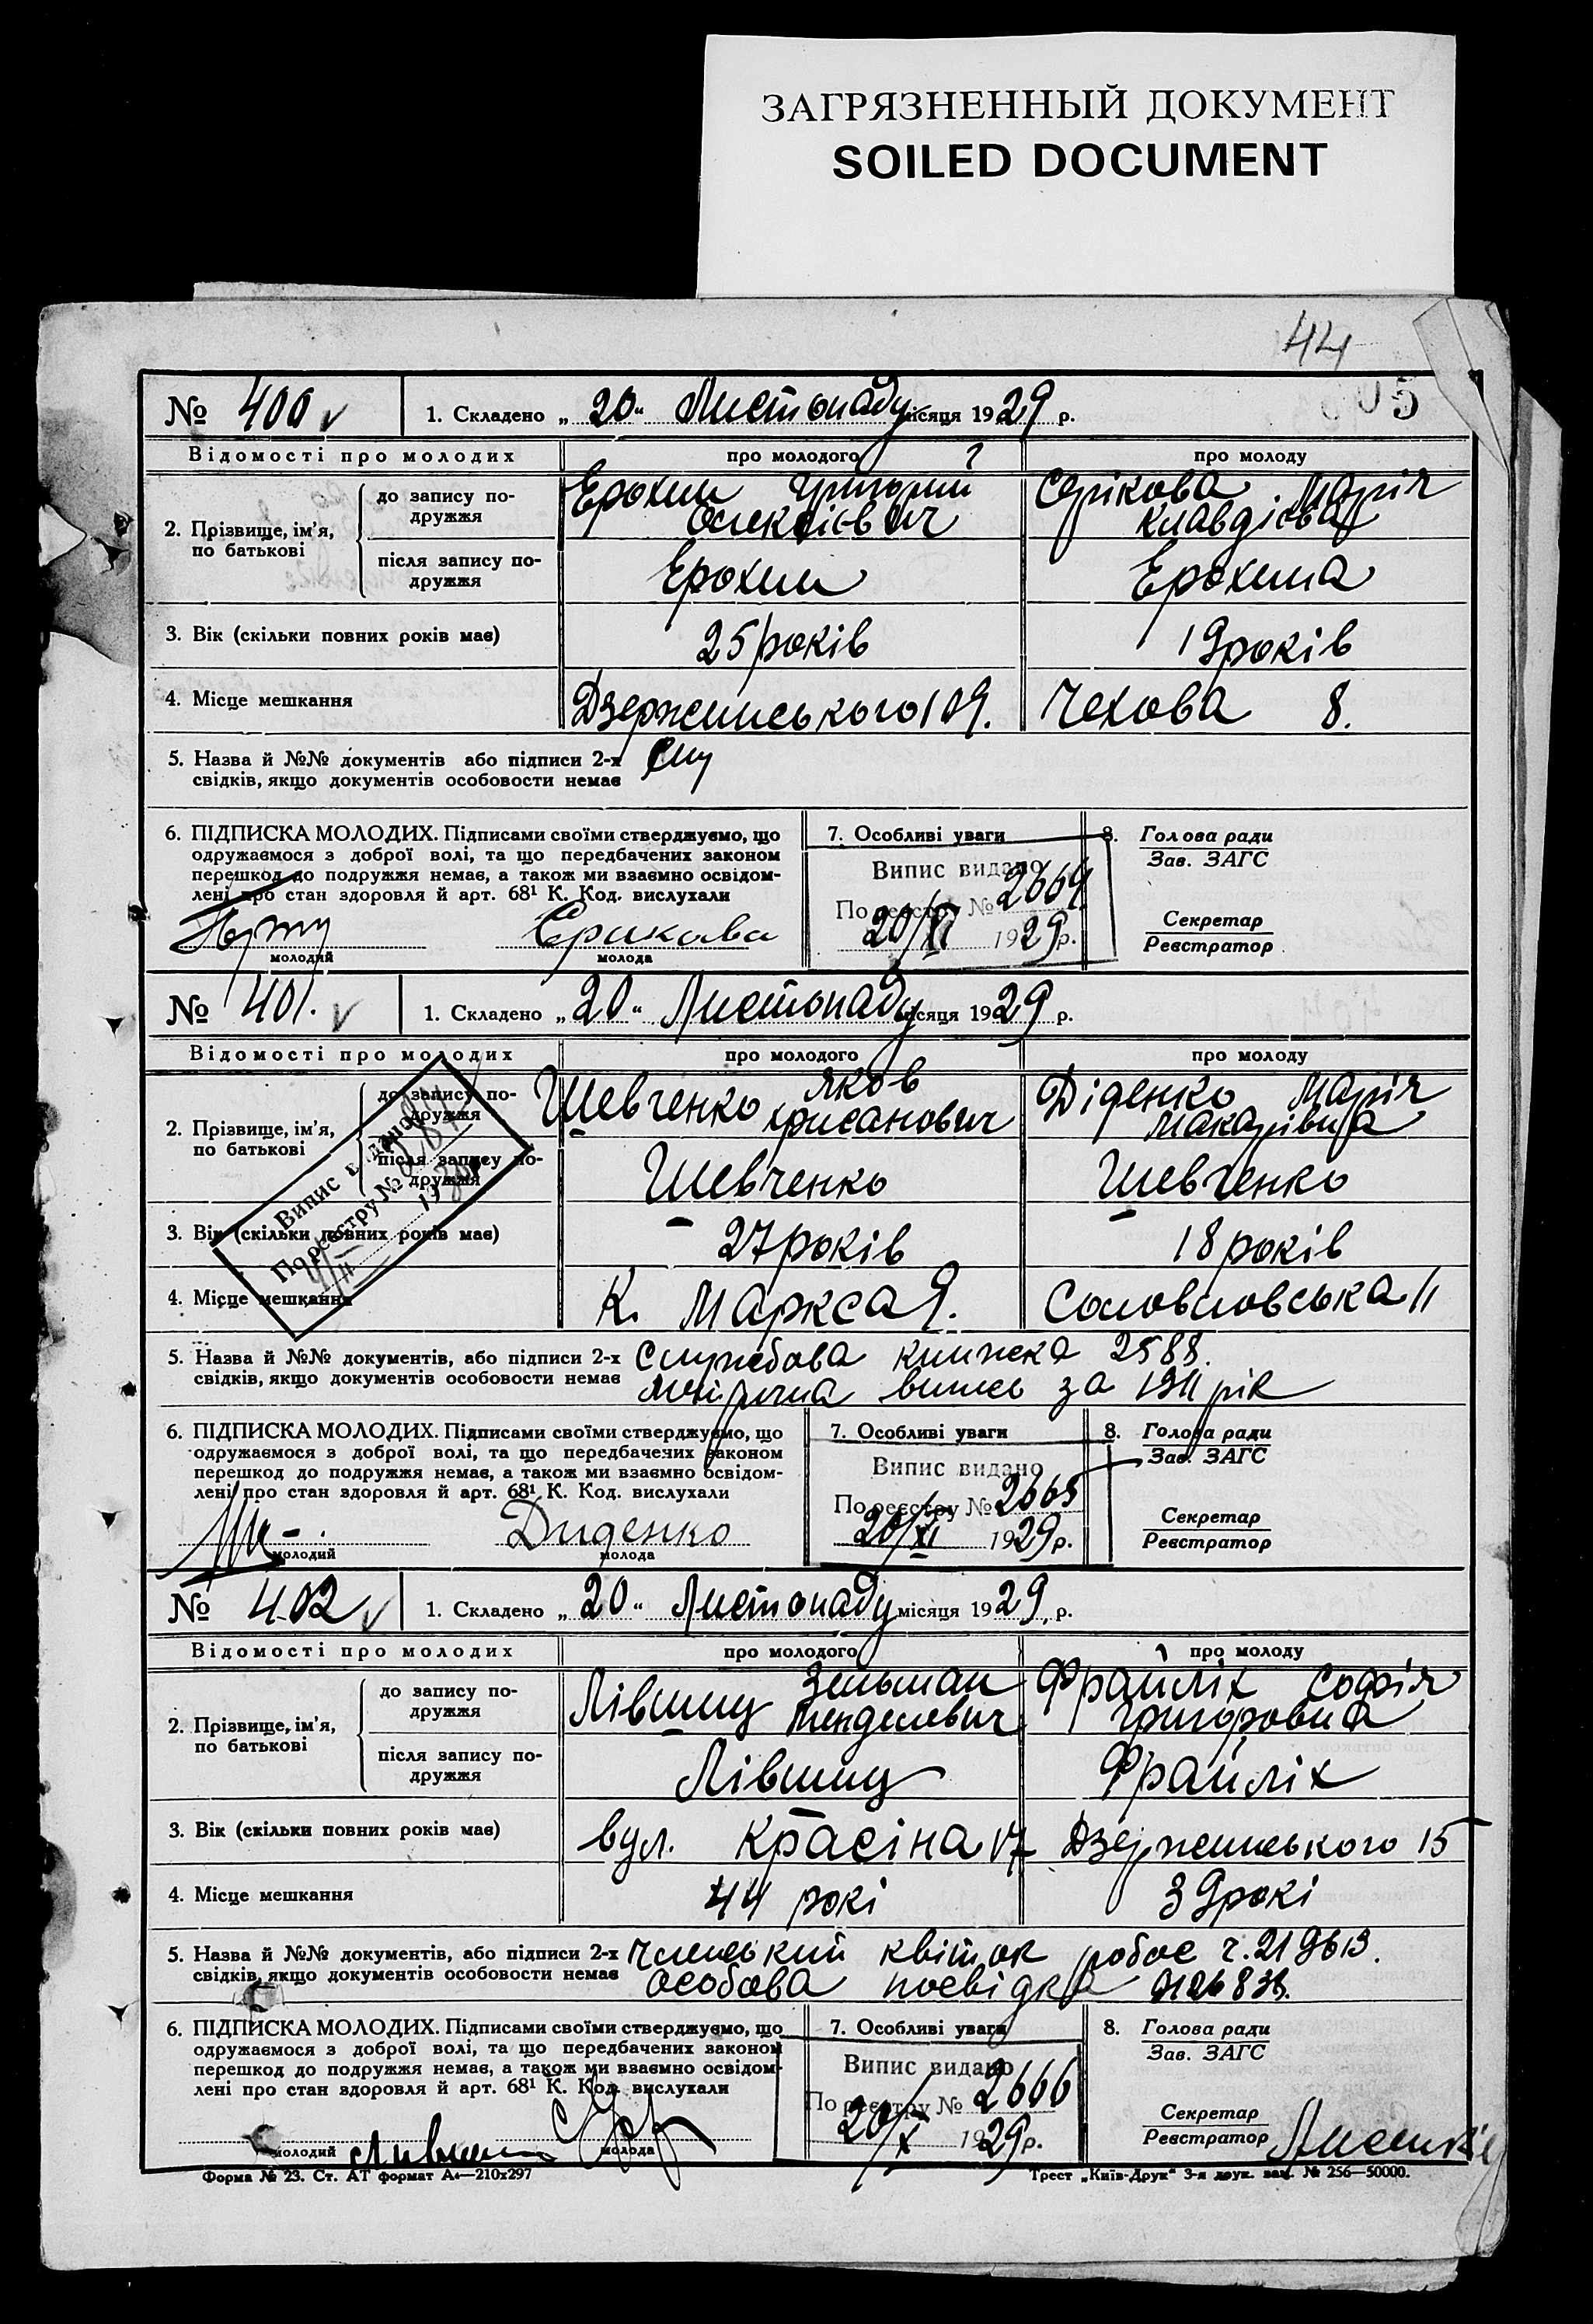 ЗАГРЯЗНЕННЫЙ ДОКУМЕНТ
SOILED DOCUMENT
44
5
№ 400 v
1. Складено „20“ Листопаду місяця 1929 р.
Відомості про молодих
про молодого
про молоду
2. Прізвище, ім’я, по батькові
до запису по-
дружжя
Ерохин Григорий
Олексієвич
Сєрікова Марія
Клавдієва
після запису по-
дружжя
Ерохин
Ерохина
3. Вік (скільки повних років має)
25 років
19 років
4. Місце мешкання
Дзержинського 109.
Чехова 8.
5. Назва й №№ документів або підписи 2-х
свідків, якщо документів особовости немає
6. ПІДПИСКА МОЛОДИХ. Підписами своїми стверджуємо, що
одружаємося з доброї волі, та що передбачених законом
перешкод до подружжя немає, а також ми взаємно освідом-
лені про стан здоровля й арт. 68¹ К. Код. вислухали
Серикова
молодий
молода
7. Особливі уваги
Випис видано
По реєстру № 2664
20/XI 1929 р.
8. Голова ради
Зав. ЗАГС
Секретар
Реєстратор
№ 401. v
1. Складено „20“ Листопаду місяця 1929 р.
Відомості про молодих
про молодого
про молоду
2. Прізвище, ім’я,
по батькові
до запису по-
дружжя
Шевченко Яков
Хрисанович
Діденко Марія
Макарівна
після запису по-
дружжя
Шевченко
Шевченко
Випис видано
По реєстру №
3. Вік (скільки повних років має)
27 років
18 років
4. Місце мешкання
К. Маркса 9.
Соловцовська 11
5. Назва й №№ документів, або підписи 2-х
свідків, якщо документів особовости немає
Службова книжка 2588.
Метрична випис за 1911 рік
6. ПІДПИСКА МОЛОДИХ. Підписами своїми стверджуємо, що
одружаємося з доброї волі, та що передбачених законом
перешкод до подружжя немає, а також ми взаємно освідом-
лені про стан здоровля й арт. 68¹ К. Код. вислухали
Диденко
молодий
молода
7. Особливі уваги
Випис видано
По реєстру № 2665
20/XI 1929 р.
8. Голова ради
Зав. ЗАГС
Секретар
Реєстратор
№ 402 v
1. Складено „20“ Листопаду місяця 1929 р.
Відомості про молодих
про молодого
про молоду
2. Прізвище, ім’я,
по батькові
до запису по-
дружжя
Лівшиц Зельман
Менделевич
Фрайліх Софія
Григоровна
після запису по-
дружжя
Лівшиц
Фрайліх
3. Вік (скільки повних років має)
вул. Красіна 17
Дзержинського 15
4. Місце мешкання
44 рокі
39 рокі
5. Назва й №№ документів, або підписи 2-х
свідків, якщо документів особовости немає
Членський квіток робос ч. 219613.
Особова посвідка
6. ПІДПИСКА МОЛОДИХ. Підписами своїми стверджуємо, що
одружаємося з доброї волі, та що передбачених законом
перешкод до подружжя немає, а також ми взаємно освідом-
лені про стан здоровля й арт. 68¹ К. Код. вислухали
молодий
молода
7. Особливі уваги
Випис видано
По реєстру № 2666
20/X 1929 р.
8. Голова ради
Зав. ЗАГС
Секретар
Реєстратор
Форма № 23. Ст. АТ формат А₄—210х297
Трест „Київ-Друк“ 3-я друк. зам. № 256—50000.